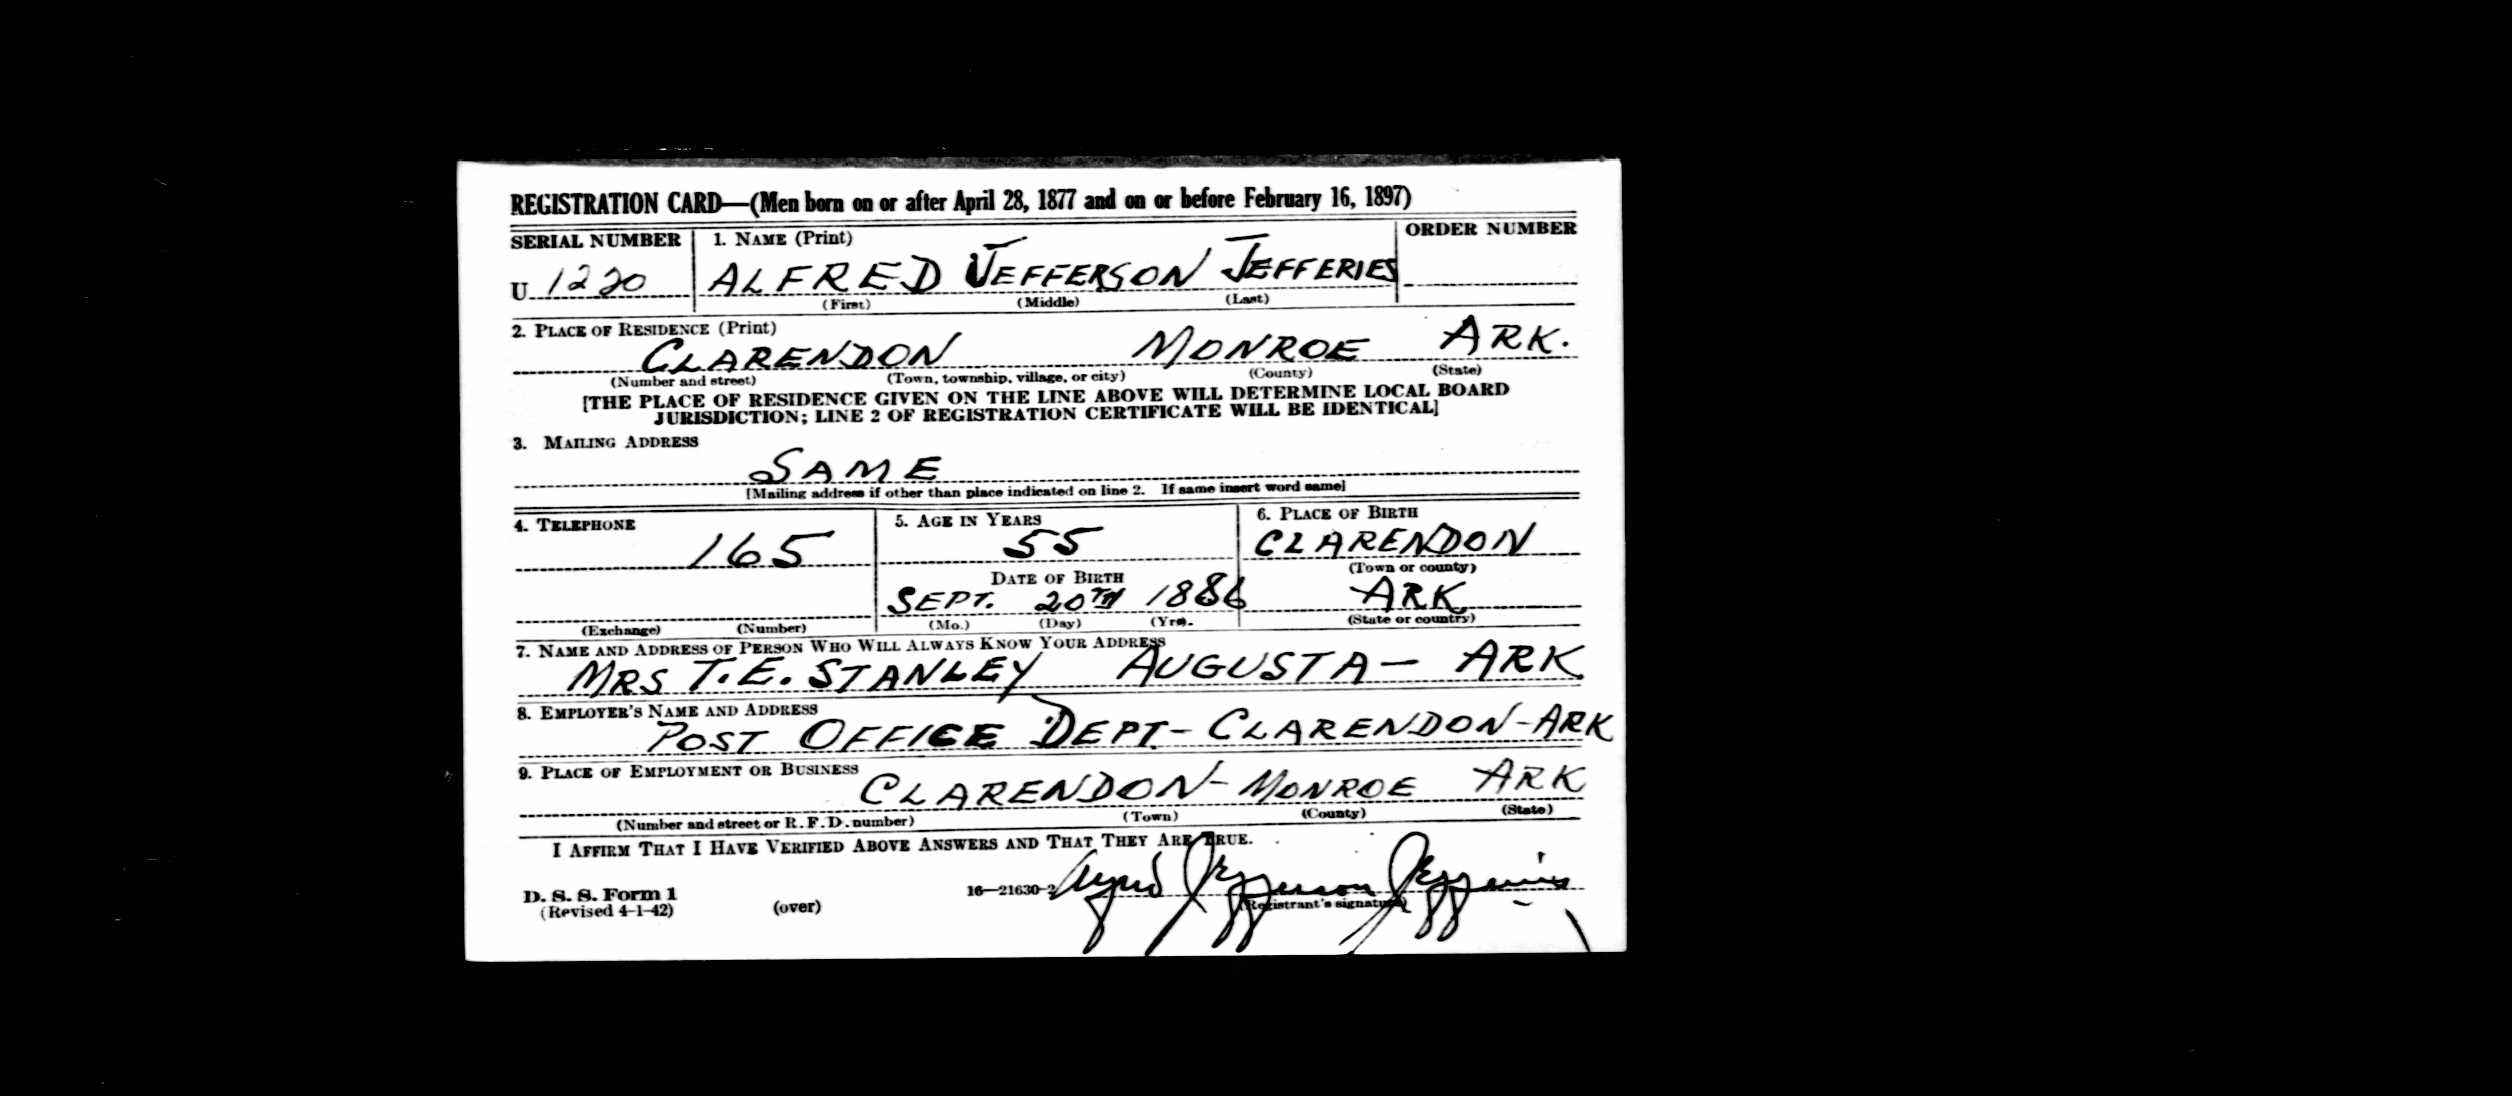 REGISTRATION CARD—(Men born on or after April 28, 1877 and on or before February 16, 1897)
SERIAL NUMBER 1. NAME (Print) ORDER NUMBER
U 1220 ALFRED JEFFERSON JEFFERIES
(First) (Middle) (Last)
2. PLACE OF RESIDENCE (Print)
CLARENDON MONROE ARK.
(Number and street) (Town, township, village, or city) (County) (State)
[THE PLACE OF RESIDENCE GIVEN ON THE LINE ABOVE WILL DETERMINE LOCAL BOARD
JURISDICTION; LINE 2 OF REGISTRATION CERTIFICATE WILL BE IDENTICAL]
3. MAILING ADDRESS
SAME
[Mailing address if other than place indicated on line 2. If same insert word same]
4. TELEPHONE 5. AGE IN YEARS 6. PLACE OF BIRTH
165 55 CLARENDON
DATE OF BIRTH (Town or county)
SEPT. 20TH 1886 ARK
(Exchange) (Number) (Mo.) (Day) (Yr.) (State or country)
7. NAME AND ADDRESS OF PERSON WHO WILL ALWAYS KNOW YOUR ADDRESS
MRS T.E. STANLEY AUGUSTA — ARK
8. EMPLOYER'S NAME AND ADDRESS
POST OFFICE DEPT - CLARENDON - ARK
9. PLACE OF EMPLOYMENT OR BUSINESS
CLARENDON - MONROE ARK
(Number and street or R.F.D. number) (Town) (County) (State)
I AFFIRM THAT I HAVE VERIFIED ABOVE ANSWERS AND THAT THEY ARE TRUE.
D. S. S. Form 1 16—21630-2 Alfred Jefferson Jefferies
(Revised 4-1-42) (over) (Registrant's signature)